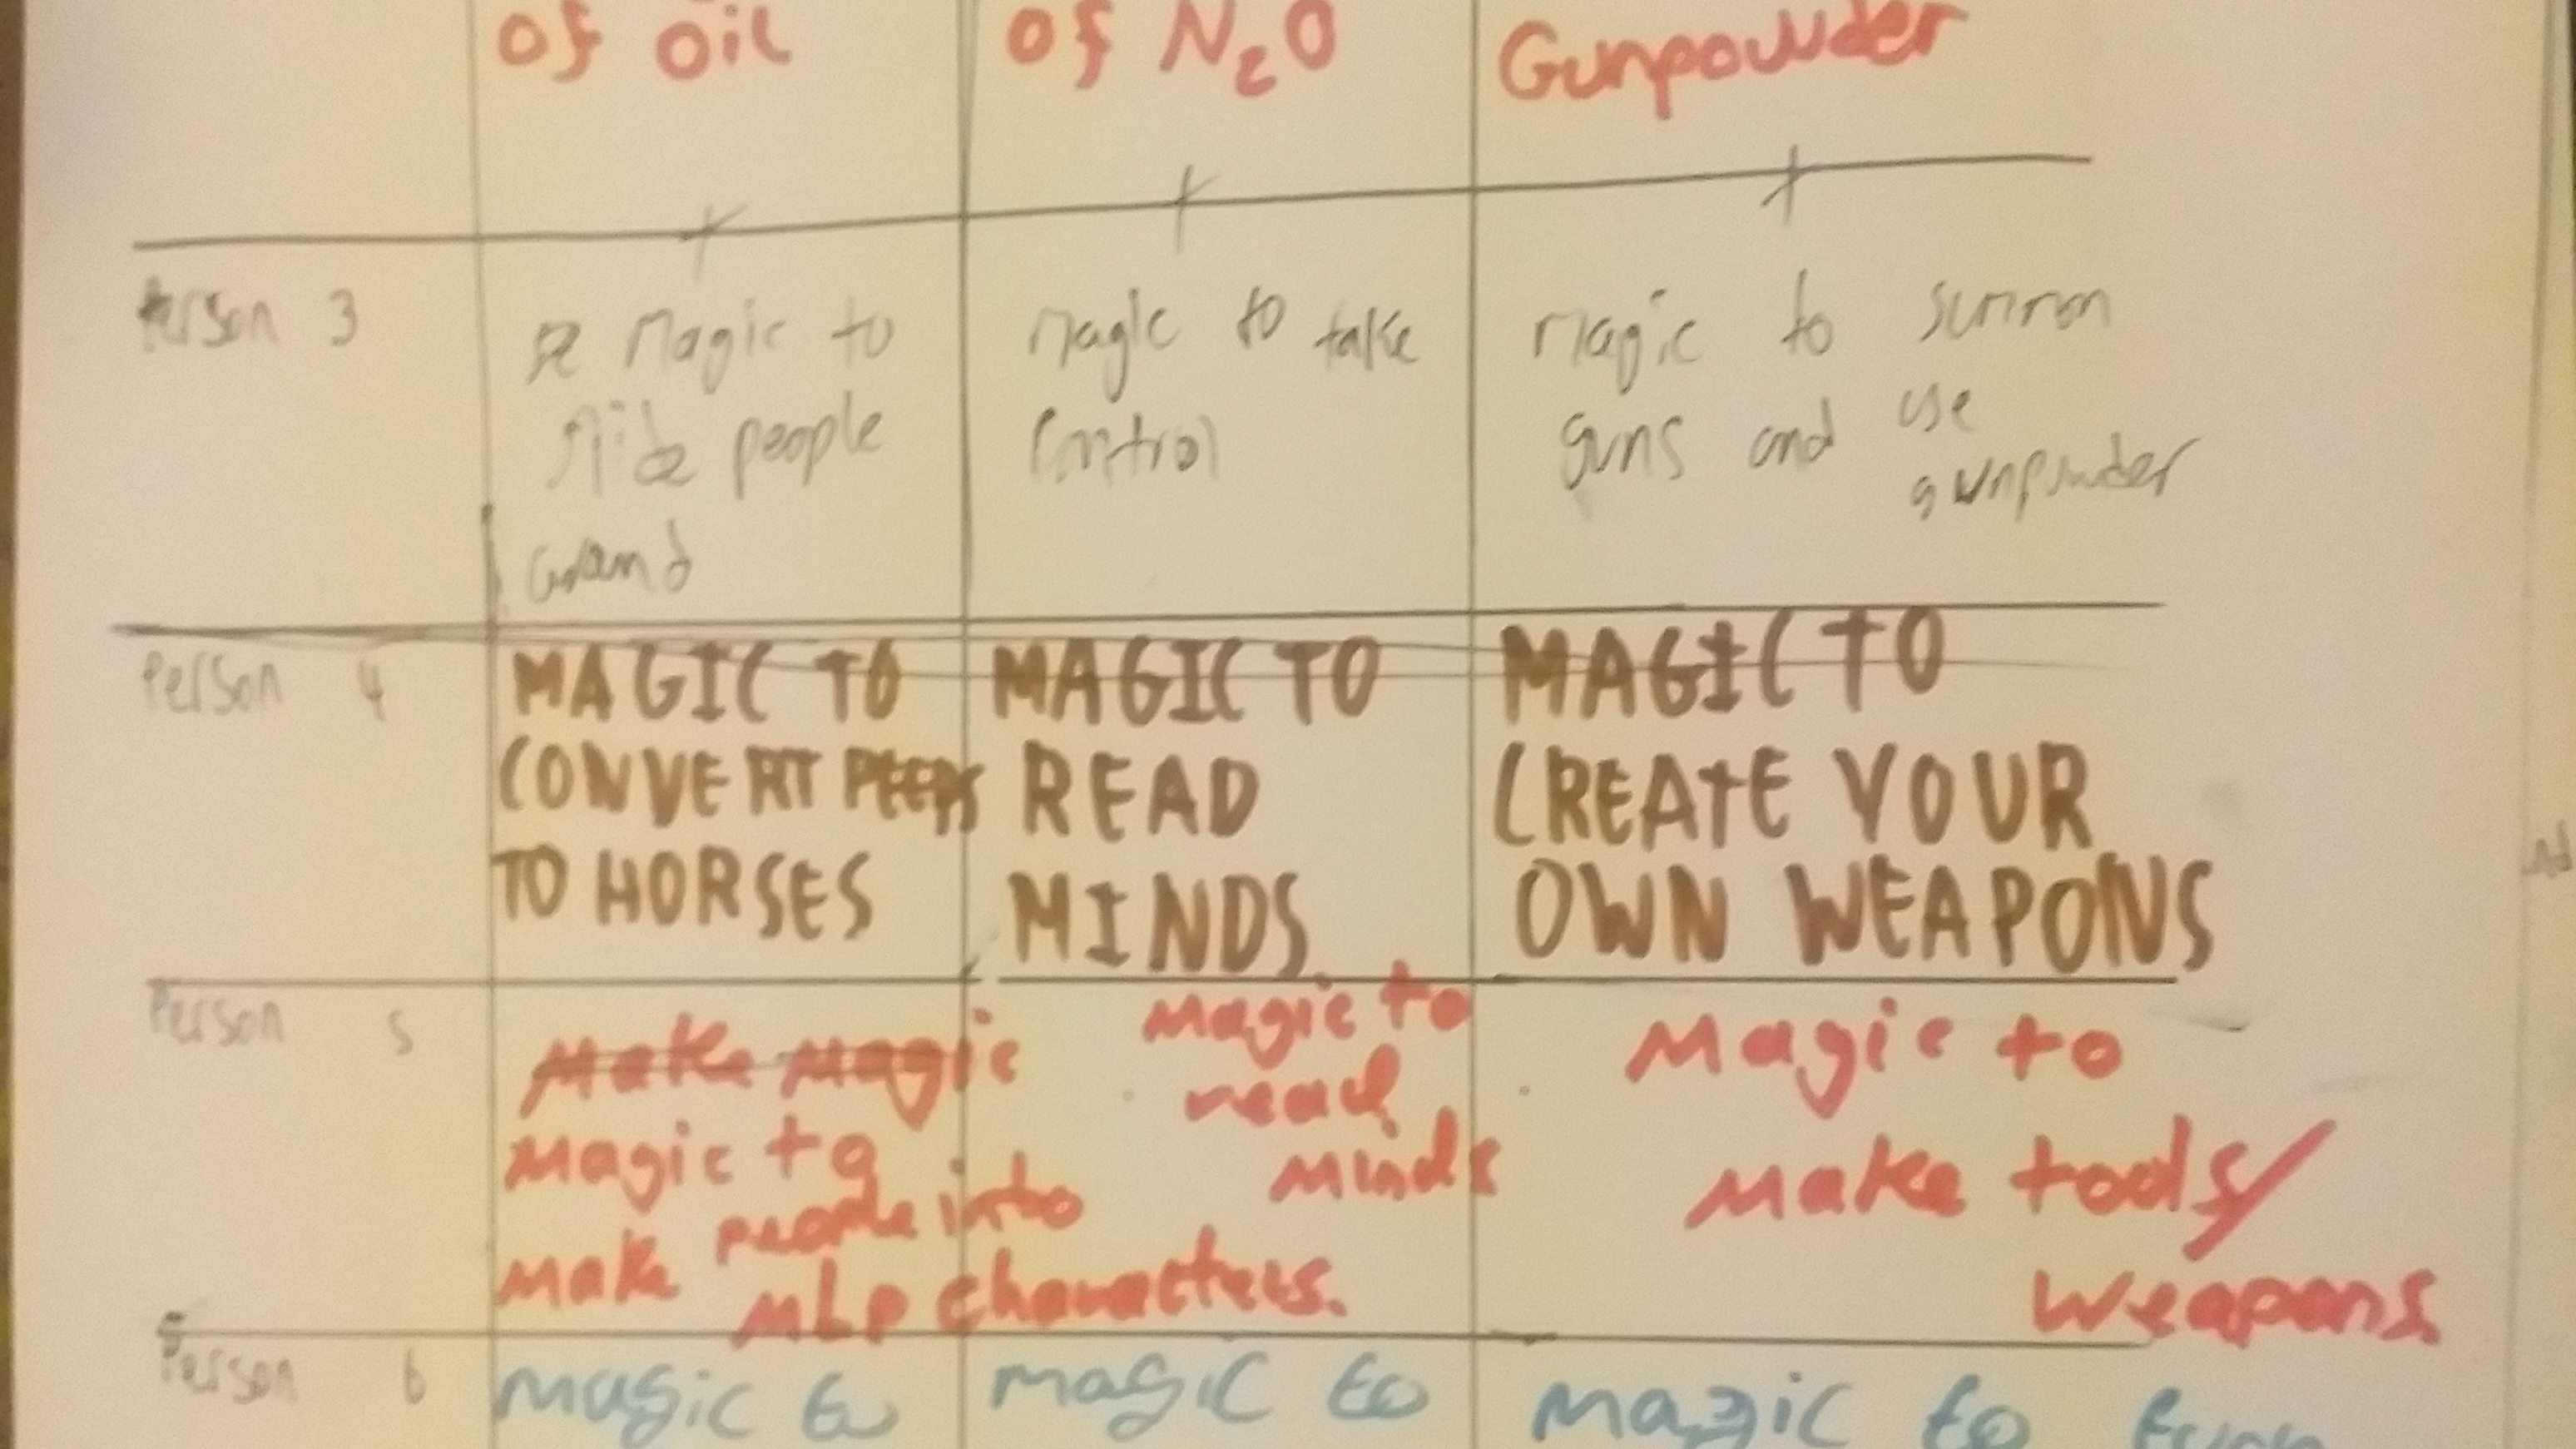 of oil
of N2O
Gunpowder
Person 3
Magic to
people
magic to take
control
Magic to summon
guns and use
gunpowder
Person 4
MAGIC TO
CONVERT PEEPS
TO HORSES
MAGIC TO
READ
MINDS
MAGIC TO
CREATE YOUR
OWN WEAPONS
Person 5
Make magic
Magic to
make people into
MLP characters.
Magic to
read
minds
Magic to
make tools/
weapons
Person 6
magic to
magic to
magic to turn